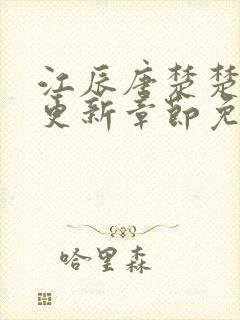 江辰唐楚楚
更新章节免
哈里森